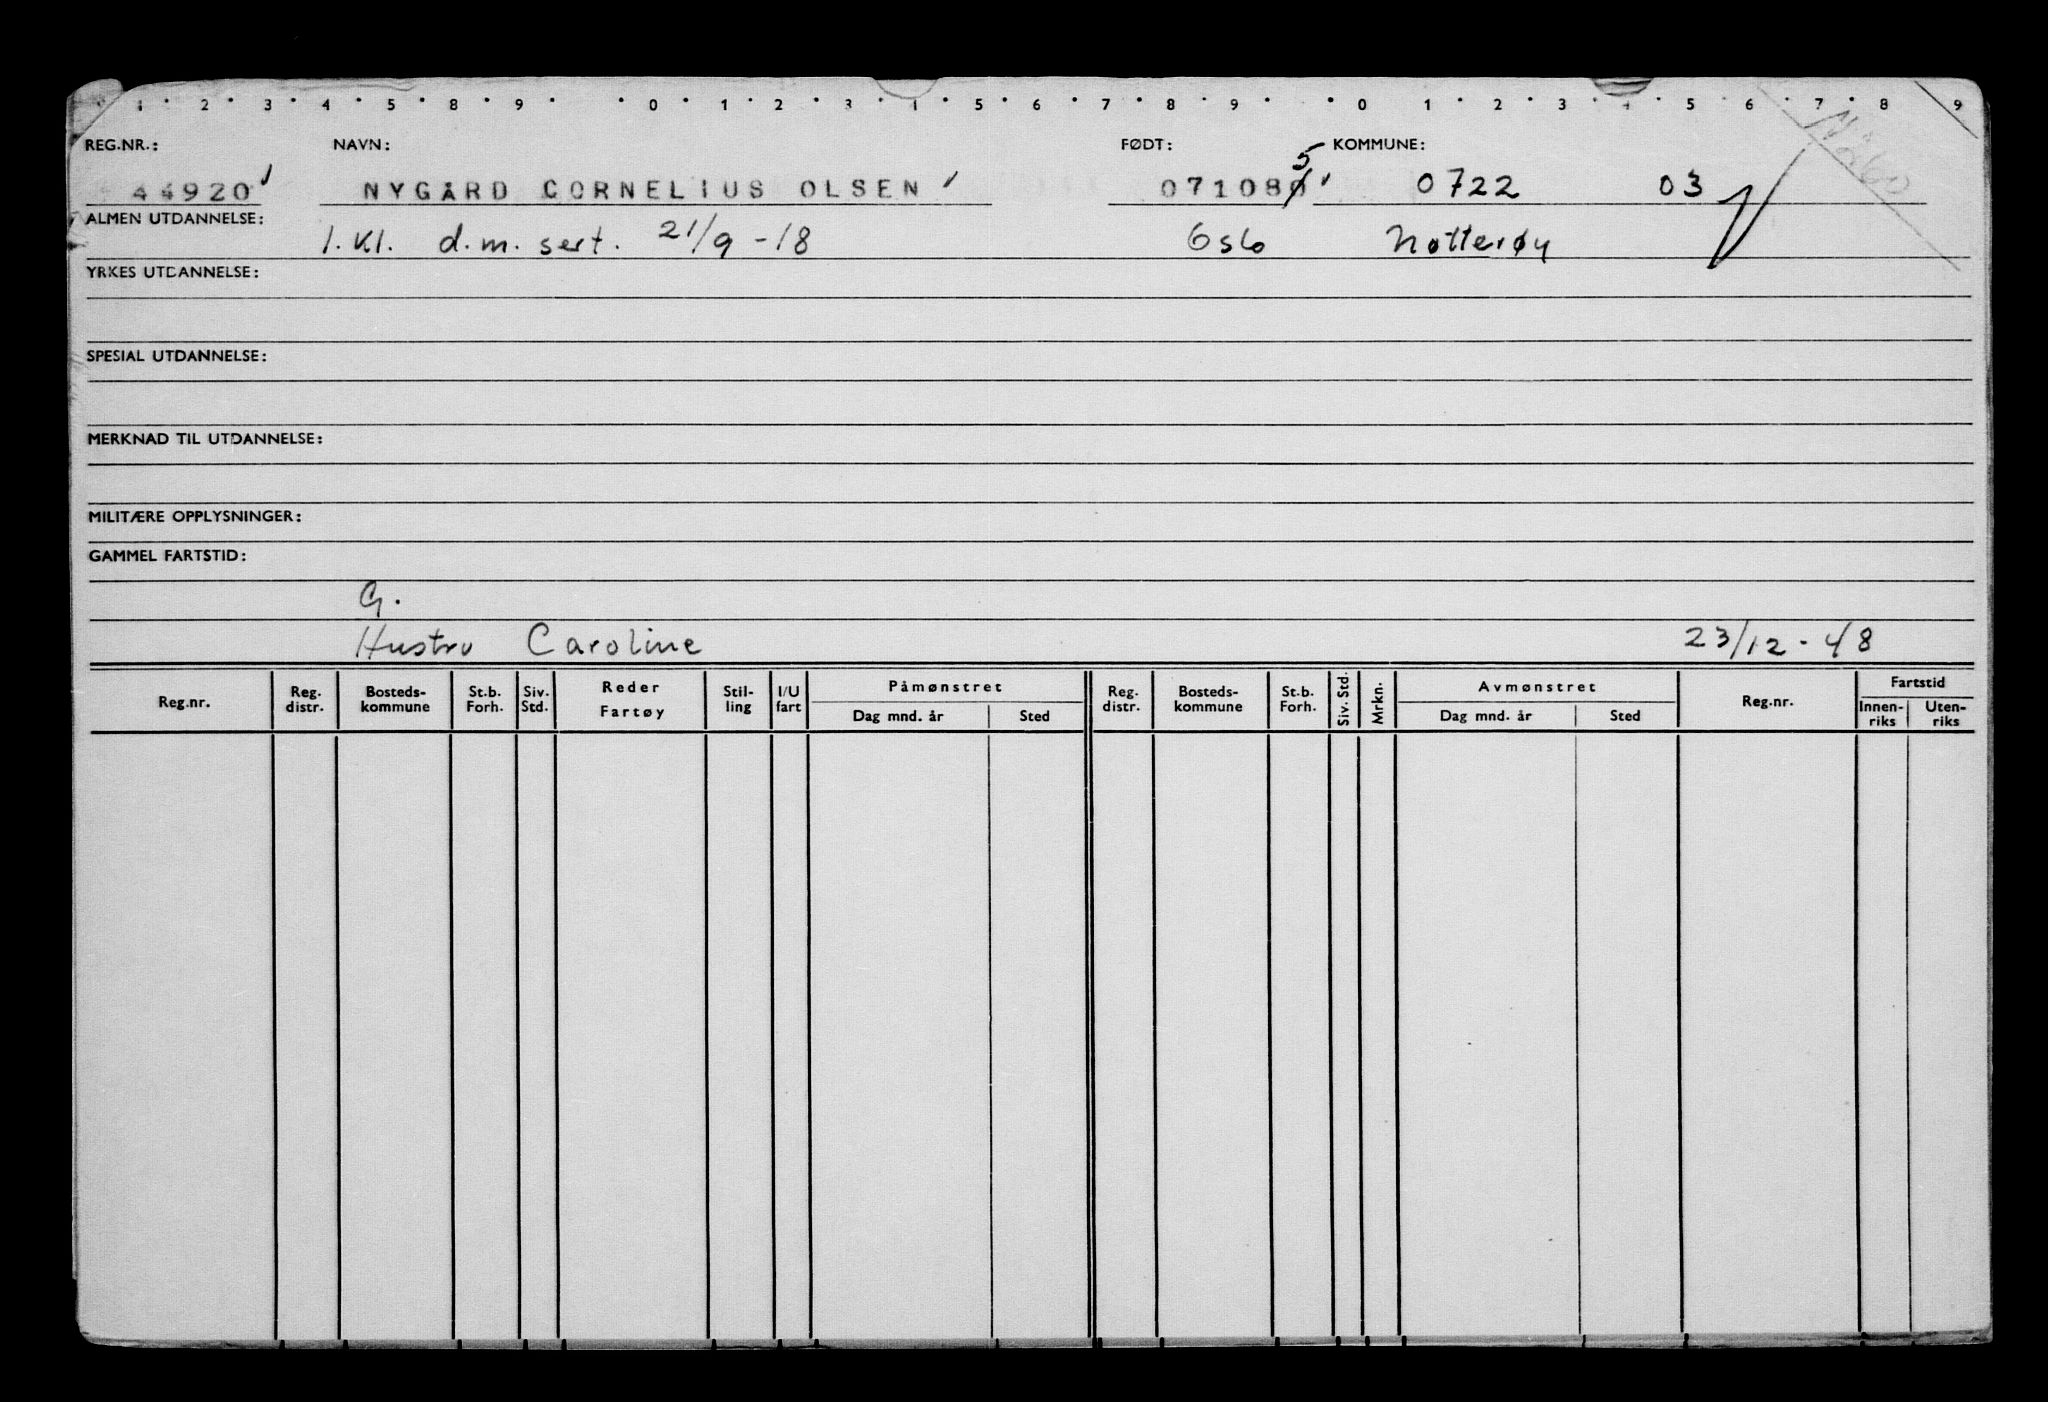 1 2 3 4 5 8 9 4 0 1 2 3 4 5 6 7 8 9 0 1 2 3 4 5 6 7 8 9
REG.NR.: NAVN: FØDT: KOMMUNE:
5
44920 NYGÅRD CORNELIUS OLSEN 071080 0722 03
ALMEN UTDANNELSE: 1. Kl. d.m. sert. 21/9 - 18 Oslo Nøtterøy
YRKES UTDANNELSE:
SPESIAL UTDANNELSE:
MERKNAD TIL UTDANNELSE:
MILITÆRE OPPLYSNINGER:
GAMMEL FARTSTID:
G.
Hustru Caroline 23/12 - 48
Reg.nr. Reg. distr. Bosteds- kommune St.b. Forh. Siv. Std. Reder Fartøy Stil- ling I/U fart Påmønstret Dag mnd. år Sted Reg. distr. Bosteds- kommune St.b. Forh. Siv. Std. Mrkn. Avmønstret Dag mnd. år Sted Reg.nr. Fartstid Innen- riks Uten- riks